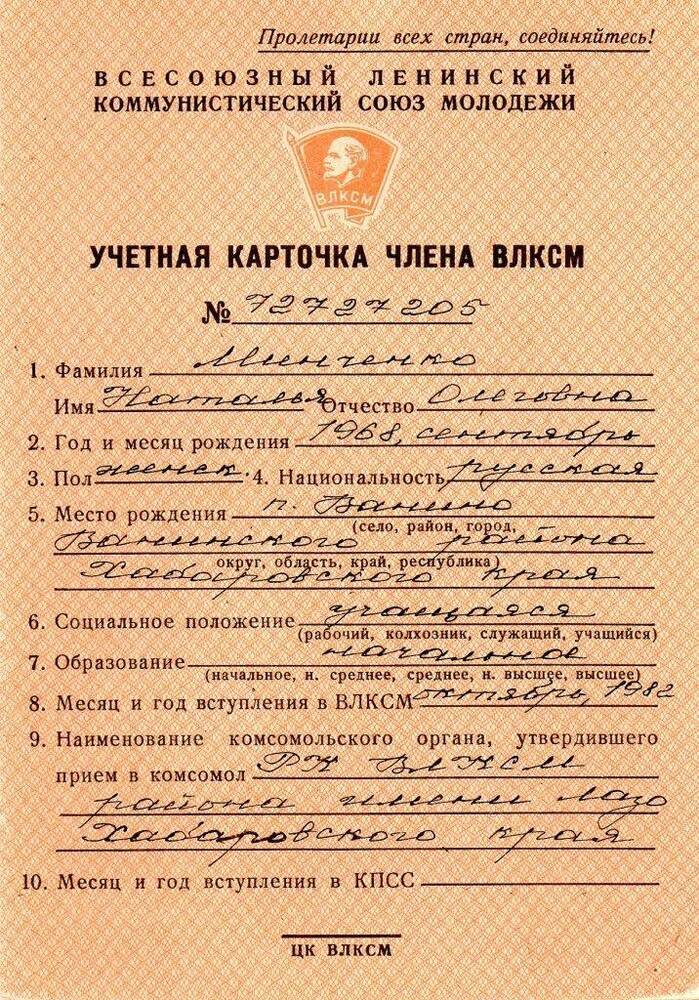 Пролетарии всех стран, соединяйтесь!
ВСЕСОЮЗНЫЙ ЛЕНИНСКИЙ
КОММУНИСТИЧЕСКИЙ СОЮЗ МОЛОДЕЖИ
ВЛКСМ
УЧЕТНАЯ КАРТОЧКА ЧЛЕНА ВЛКСМ
№ 72727205
1. Фамилия Минченко
Имя Наталья Отчество Олеговна
2. Год и месяц рождения 1968, сентябрь
3. Пол женск. 4. Национальность русская
5. Место рождения п. Ванино
(село, район, город,
Ванинского района
округ, область, край, республика)
Хабаровского края
6. Социальное положение учащаяся
(рабочий, колхозник, служащий, учащийся)
7. Образование начальное
(начальное, н. среднее, среднее, н. высшее, высшее)
8. Месяц и год вступления в ВЛКСМ октябрь, 1982
9. Наименование комсомольского органа, утвердившего
прием в комсомол РК ВЛКСМ
района имени Лазо
Хабаровского края
10. Месяц и год вступления в КПСС
ЦК ВЛКСМ